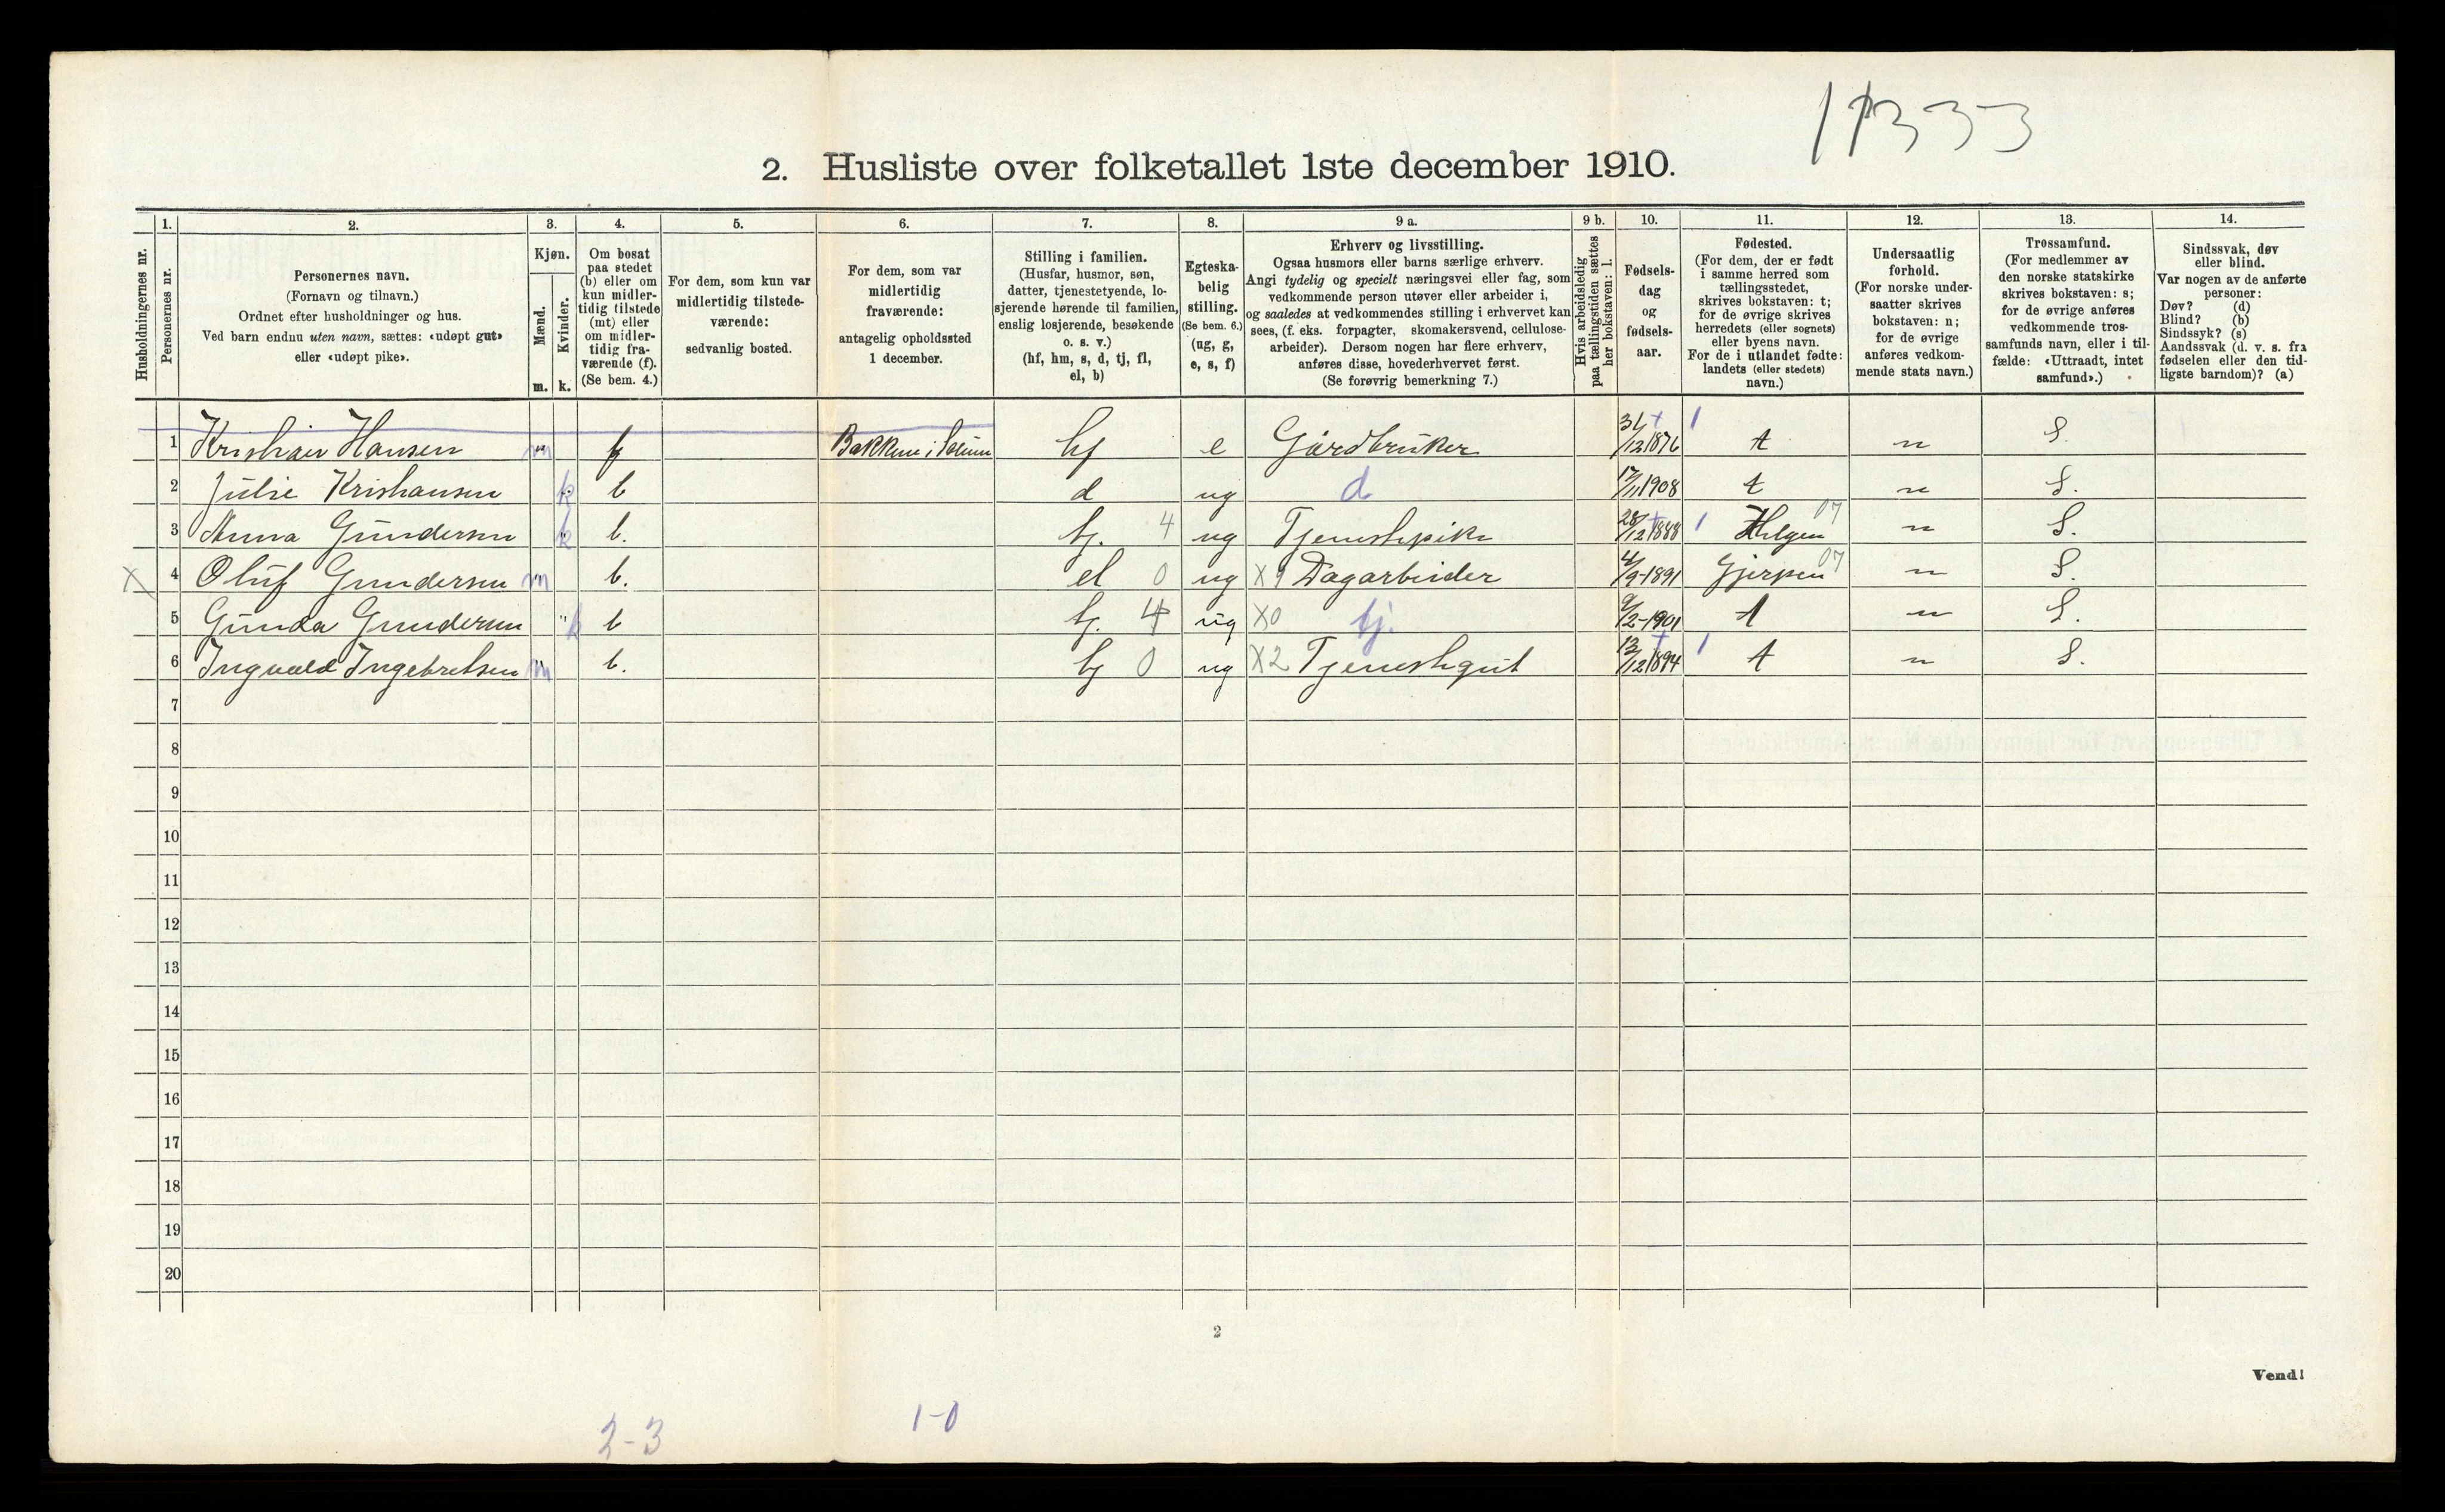 11333
2. Husliste over folketallet 1ste december 1910.
Husholdningernes nr.
1. Personernes nr.
2.
Personernes navn.
(Fornavn og tilnavn.)
Ordnet efter husholdninger og hus.
Ved barn endnu uten navn, sættes: «udøpt gut»
eller «udøpt pike».
3.
Kjøn.
Mænd. m.
Kvinder. k.
4.
Om bosat
paa stedet
(b) eller om
kun midler-
tidig tilstede
(mt) eller
om midler-
tidig fra-
værende (f).
(Se bem. 4.)
5.
For dem, som kun var
midlertidig tilstede-
værende:
sedvanlig bosted.
6.
For dem, som var
midlertidig
fraværende:
antagelig opholdssted
1 december.
7.
Stilling i familien.
(Husfar, husmor, søn,
datter, tjenestetyende, lo-
sjerende hørende til familien,
enslig losjerende, besøkende
o. s. v.)
(hf, hm, s, d, tj, fl,
el, b)
8.
Egteska-
belig
stilling.
(Se bem. 6.)
(ug, g,
e, s, f)
9 a.
Erhverv og livsstilling.
Ogsaa husmors eller barns særlige erhverv.
Angi tydelig og specielt næringsvei eller fag, som
vedkommende person utøver eller arbeider i,
og saaledes at vedkommendes stilling i erhvervet kan
sees, (f. eks. forpagter, skomakersvend, cellulose-
arbeider). Dersom nogen har flere erhverv,
anføres disse, hovederhvervet først.
(Se forøvrig bemerkning 7.)
9 b.
Hvis arbeidsledig
paa tællingstiden sættes
her bokstaven: l.
10.
Fødsels-
dag
og
fødsels-
aar.
11.
Fødested.
(For dem, der er født
i samme herred som
tællingsstedet,
skrives bokstaven: t;
for de øvrige skrives
herredets (eller sognets)
eller byens navn.
For de i utlandet fødte:
landets (eller stedets)
navn.)
12.
Undersaatlig
forhold.
(For norske under-
saatter skrives
bokstaven: n;
for de øvrige
anføres vedkom-
mende stats navn.)
13.
Trossamfund.
(For medlemmer av
den norske statskirke
skrives bokstaven: s;
for de øvrige anføres
vedkommende tros-
samfunds navn, eller i til-
fælde: «Uttraadt, intet
samfund».)
14.
Sindssvak, døv
eller blind.
Var nogen av de anførte
personer:
Døv? (d)
Blind? (b)
Sindssyk? (s)
Aandssvak (d. v. s. fra
fødselen eller den tid-
ligste barndom)? (a)
1 Kristian Hansen " m f Bakkene i hf e Gårdbruker 31/12 1876 + 1 t n S.
2 Julie Kristiansen " k b d ug d 17/11 1908 t n S.
3 Anna Gundersen " k b. tj. 4 ug Tjenestepike 28/12 1888 + 1 Helgen 07 n S.
X 4 Oluf Gundersen " m b. el 0 ug X9 Dagarbeider 4/9-1891 Gjerpen 07 n S.
5 Gunda Gundersen " k b tj. 4 ug X0 tj. 9/2-1901 t n S.
6 Ingvald Ingebretsen " m b. tj 0 ug X2 Tjenestegut 13/12 1894 + 1 t n S.
7
8
9
10
11
12
13
14
15
16
17
18
19
20
2
Vend!
2-3
1-0